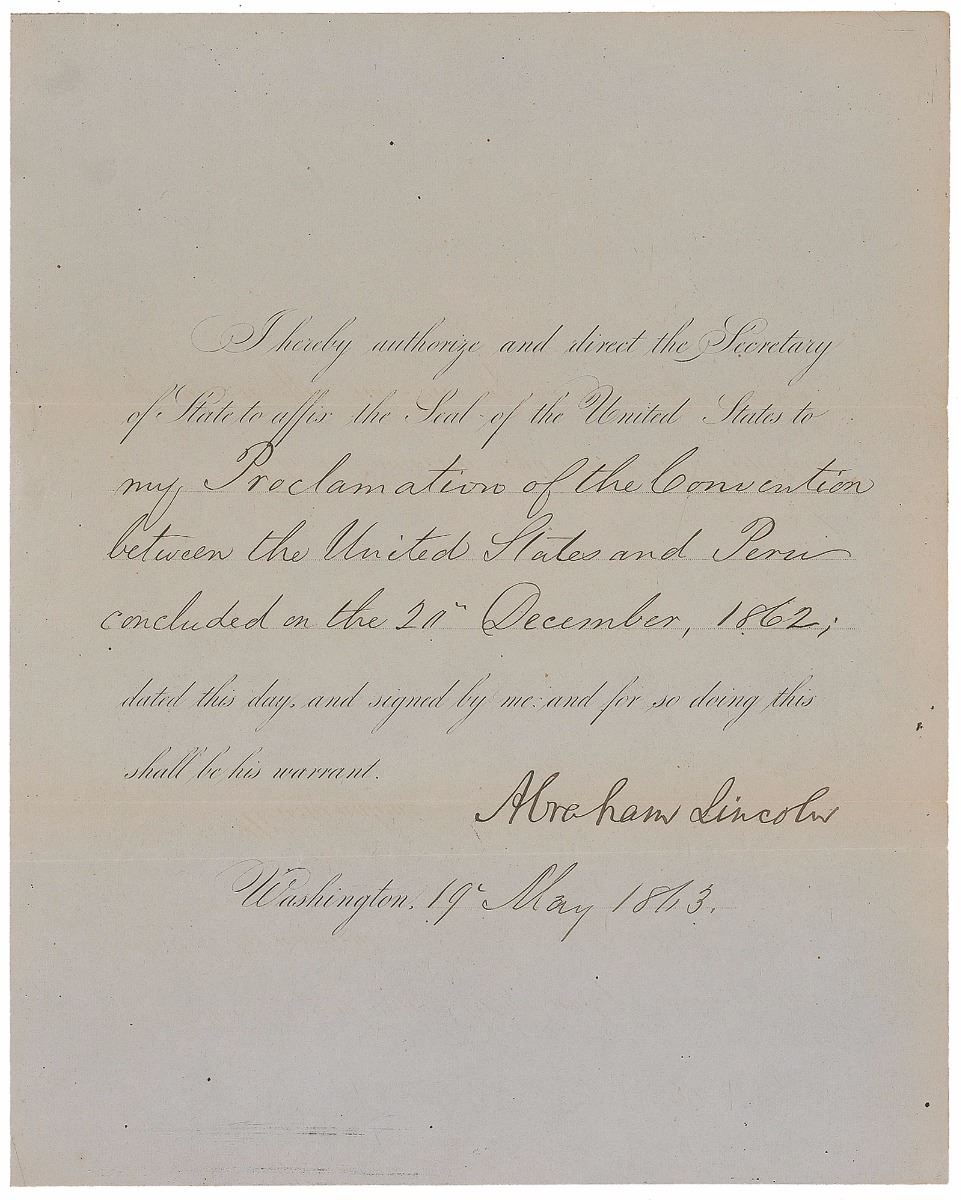 I hereby authorize and direct the Secretary
of State to affix the Seal of the United States to
my Proclamation of the Convention
between the United States and Peru
concluded on the 20" December, 1862;
dated this day, and signed by me: and for so doing this
shall be his warrant.
Abraham Lincoln
Washington, 19" May 1863.